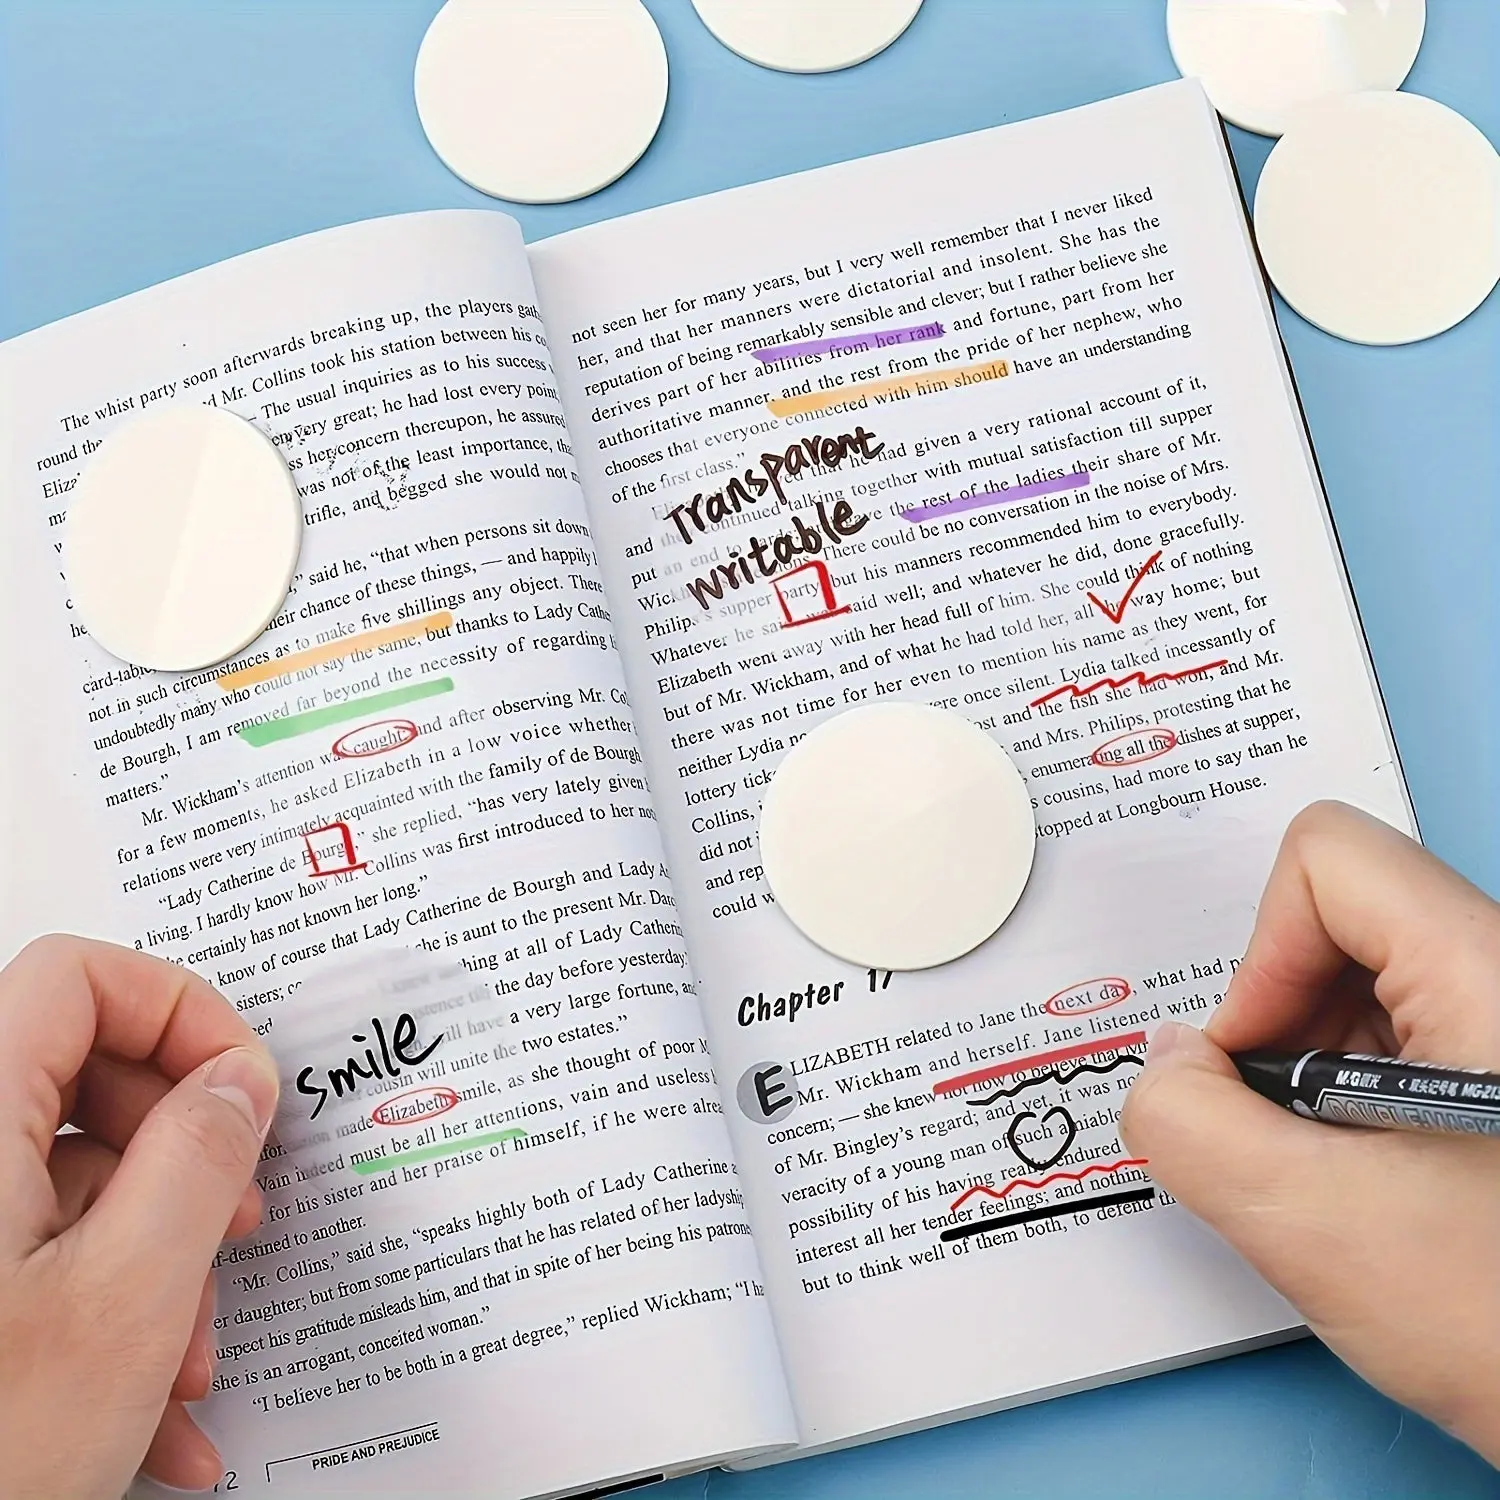 The whist party soon afterwards breaking up, the players
round the Mr. Collins took his station between his
The usual inquiries as to his success
very great; he had lost every point,
her concern thereupon, he assured
was not of the least importance,
trifle, and begged she would not
said he, “that when persons sit down
their chance of these things, — and happily
card-table,
as to make five shillings any object. There
not in such circumstances
undoubtedly many who could not say the same, but thanks to Lady
de Bourgh, I am removed far beyond the necessity of regarding
matters.”
Mr. Wickham’s attention was caught and after observing Mr.
for a few moments, he asked Elizabeth in a low voice whether
relations were very intimately acquainted with the family of de Bourgh
“Lady Catherine de Bourgh,” she replied, “has very lately given
a living. I hardly know how Mr. Collins was first introduced to her
certainly has not known her long.”
know of course that Lady Catherine de Bourgh and Lady
sisters; she is aunt to the present Mr.
at all of Lady
the day before yesterday
will have a very large fortune,
cousin will unite the two estates.”
smile
made Elizabeth smile, as she thought of poor
Vain indeed must be all her attentions, vain and useless
for his sister and her praise of himself, if he were
to another.
“Mr. Collins,” said she, “speaks highly both of Lady Catherine
er daughter; but from some particulars that he has related of her ladyship
his gratitude misleads him, and that in spite of her being his
she is an arrogant, conceited woman.”
“I believe her to be both in a great degree,” replied Wickham; “I
2
PRIDE AND PREJUDICE
not seen her for many years, but I very well remember that I never liked
her, and that her manners were dictatorial and insolent. She has the
reputation of being remarkably sensible and clever; but I rather believe she
derives part of her abilities from her rank and fortune, part from her
authoritative manner, and the rest from the pride of her nephew, who
chooses that everyone connected with him should have an understanding
of the first class.”
Transparent
writable
that he had given a very rational account of it,
and continued talking together with mutual satisfaction till supper
put an end to gave the rest of the ladies their share of Mr.
There could be no conversation in the noise of Mrs.
Philips’s supper party, but his manners recommended him to everybody.
Whatever he said, was said well; and whatever he did, done gracefully.
Elizabeth went away with her head full of him. She could think of nothing
but of Mr. Wickham, and of what he had told her, all the way home; but
there was not time for her even to mention his name as they went, for
neither Lydia were once silent. Lydia talked incessantly of
lottery and the fish she had won, and Mr.
Collins, and Mrs. Philips, protesting that he
did not enumerating all the dishes at supper,
and cousins, had more to say than he
could stopped at Longbourn House.
Chapter 17
ELIZABETH related to Jane the next day, what had
Mr. Wickham and herself. Jane listened with
concern; — she knew not how to believe that Mr
of Mr. Bingley’s regard; and yet, it was
veracity of a young man of such amiable
possibility of his having really endured
interest all her tender feelings; and nothing
but to think well of them both, to defend
M&G晨光